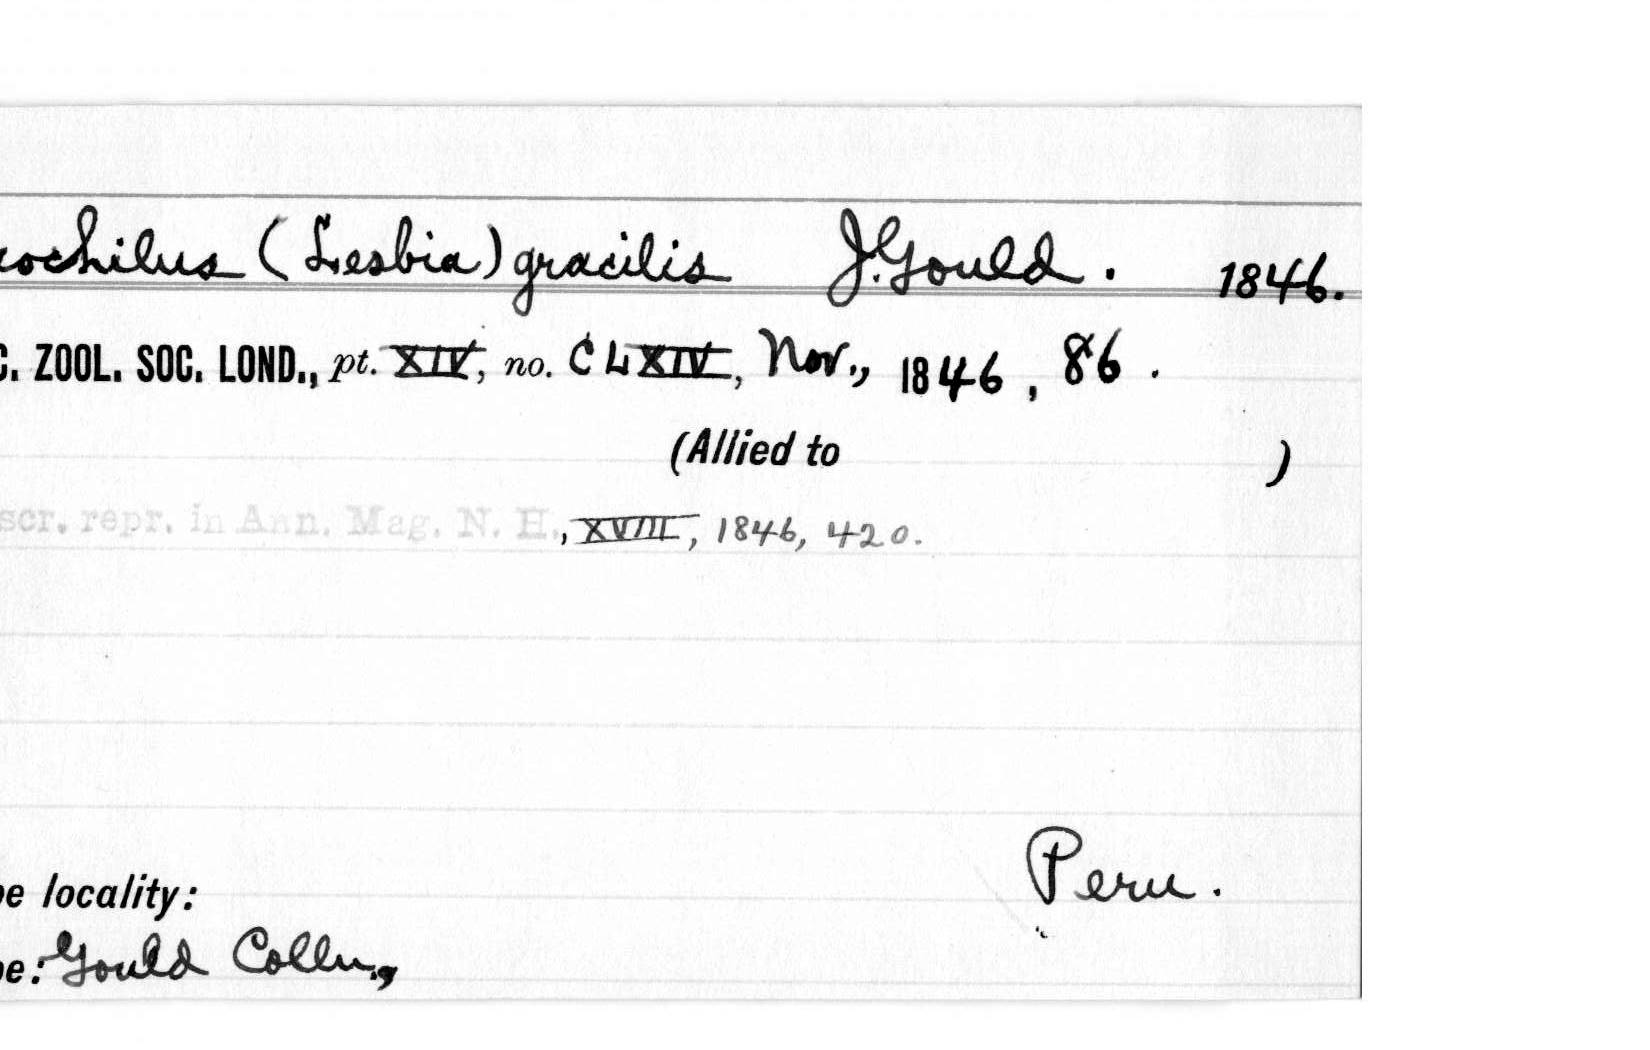 ochilus (Lesbia) gracilis J. Gould. 1846.
C. ZOOL. SOC. LOND., pt. XIV, no. CLXIV, Nov., 1846, 86.
(Allied to )
scr. repr. in Ann. Mag. N. H., XVIII, 1846, 420.
Peru.
pe locality:
pe: Gould Colln.,